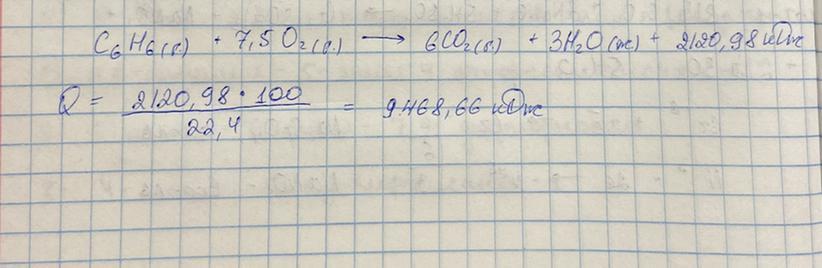 C₆H₆(г.) + 7,5O₂(г.) → 6CO₂(г.) + 3H₂O(ж) + 2120,98 кДж
Q = 2120,98 · 100 / 22,4 = 9468,66 кДж